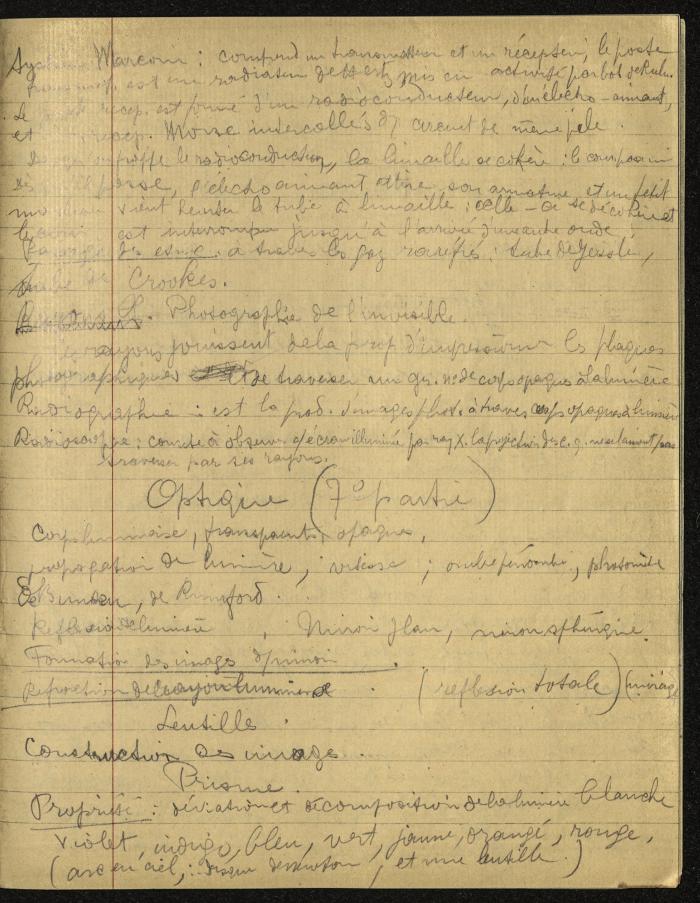 Système Marconi : comprend un transmetteur et un récepteur, le poste
est un radiateur de Hertz mis en activité par bob. de Ruhm.
Le récep. est formé d'un radioconducteur, d'un électro-aimant,
et récep. Morse intercallés ds circuit de même pile.
frappe le radioconducteur, la limaille se cohère : le courant
passe, l'électroaimant attire son armature et un petit
vient heurter le tube à limaille : celle-ci se décohère et
le est interrompu jusqu'à l'arrivée d'une autre onde.
à travers les gaz raréfiés : tube de Geissler,
tube de Crookes.
X. Photographie de l'invisible.
rayons jouissent de la prop d'impressionner les plaques
photographiques et de traverser un gr. n. de corps opaques à la lumière
Radiographie : est la prod. d'images phot. à travers corps opaques à lumière
Radioscopie : consiste à observer écran illuminé par ray X. la projection des c. q. ne se laissent pas
traverser par ses rayons.
Optique (7e partie)
Corps lumineux, transparents, opaques,
propagation de lumière, vitesse ; ombre pénombre, photomètre
De Bunsen, de Rumford.
Réflexion de lumière, Miroir plan, miroir sphérique.
Formation des images ds miroir.
Réfraction des rayons lumineux. (réflexion totale) (mirage
Lentille.
Construction des images.
Prisme.
Propriété : déviation et décomposition de la lumière blanche
Violet, indigo, bleu, vert, jaune, orangé, rouge,
(arc en ciel, : disque de newton, et une lentille.)